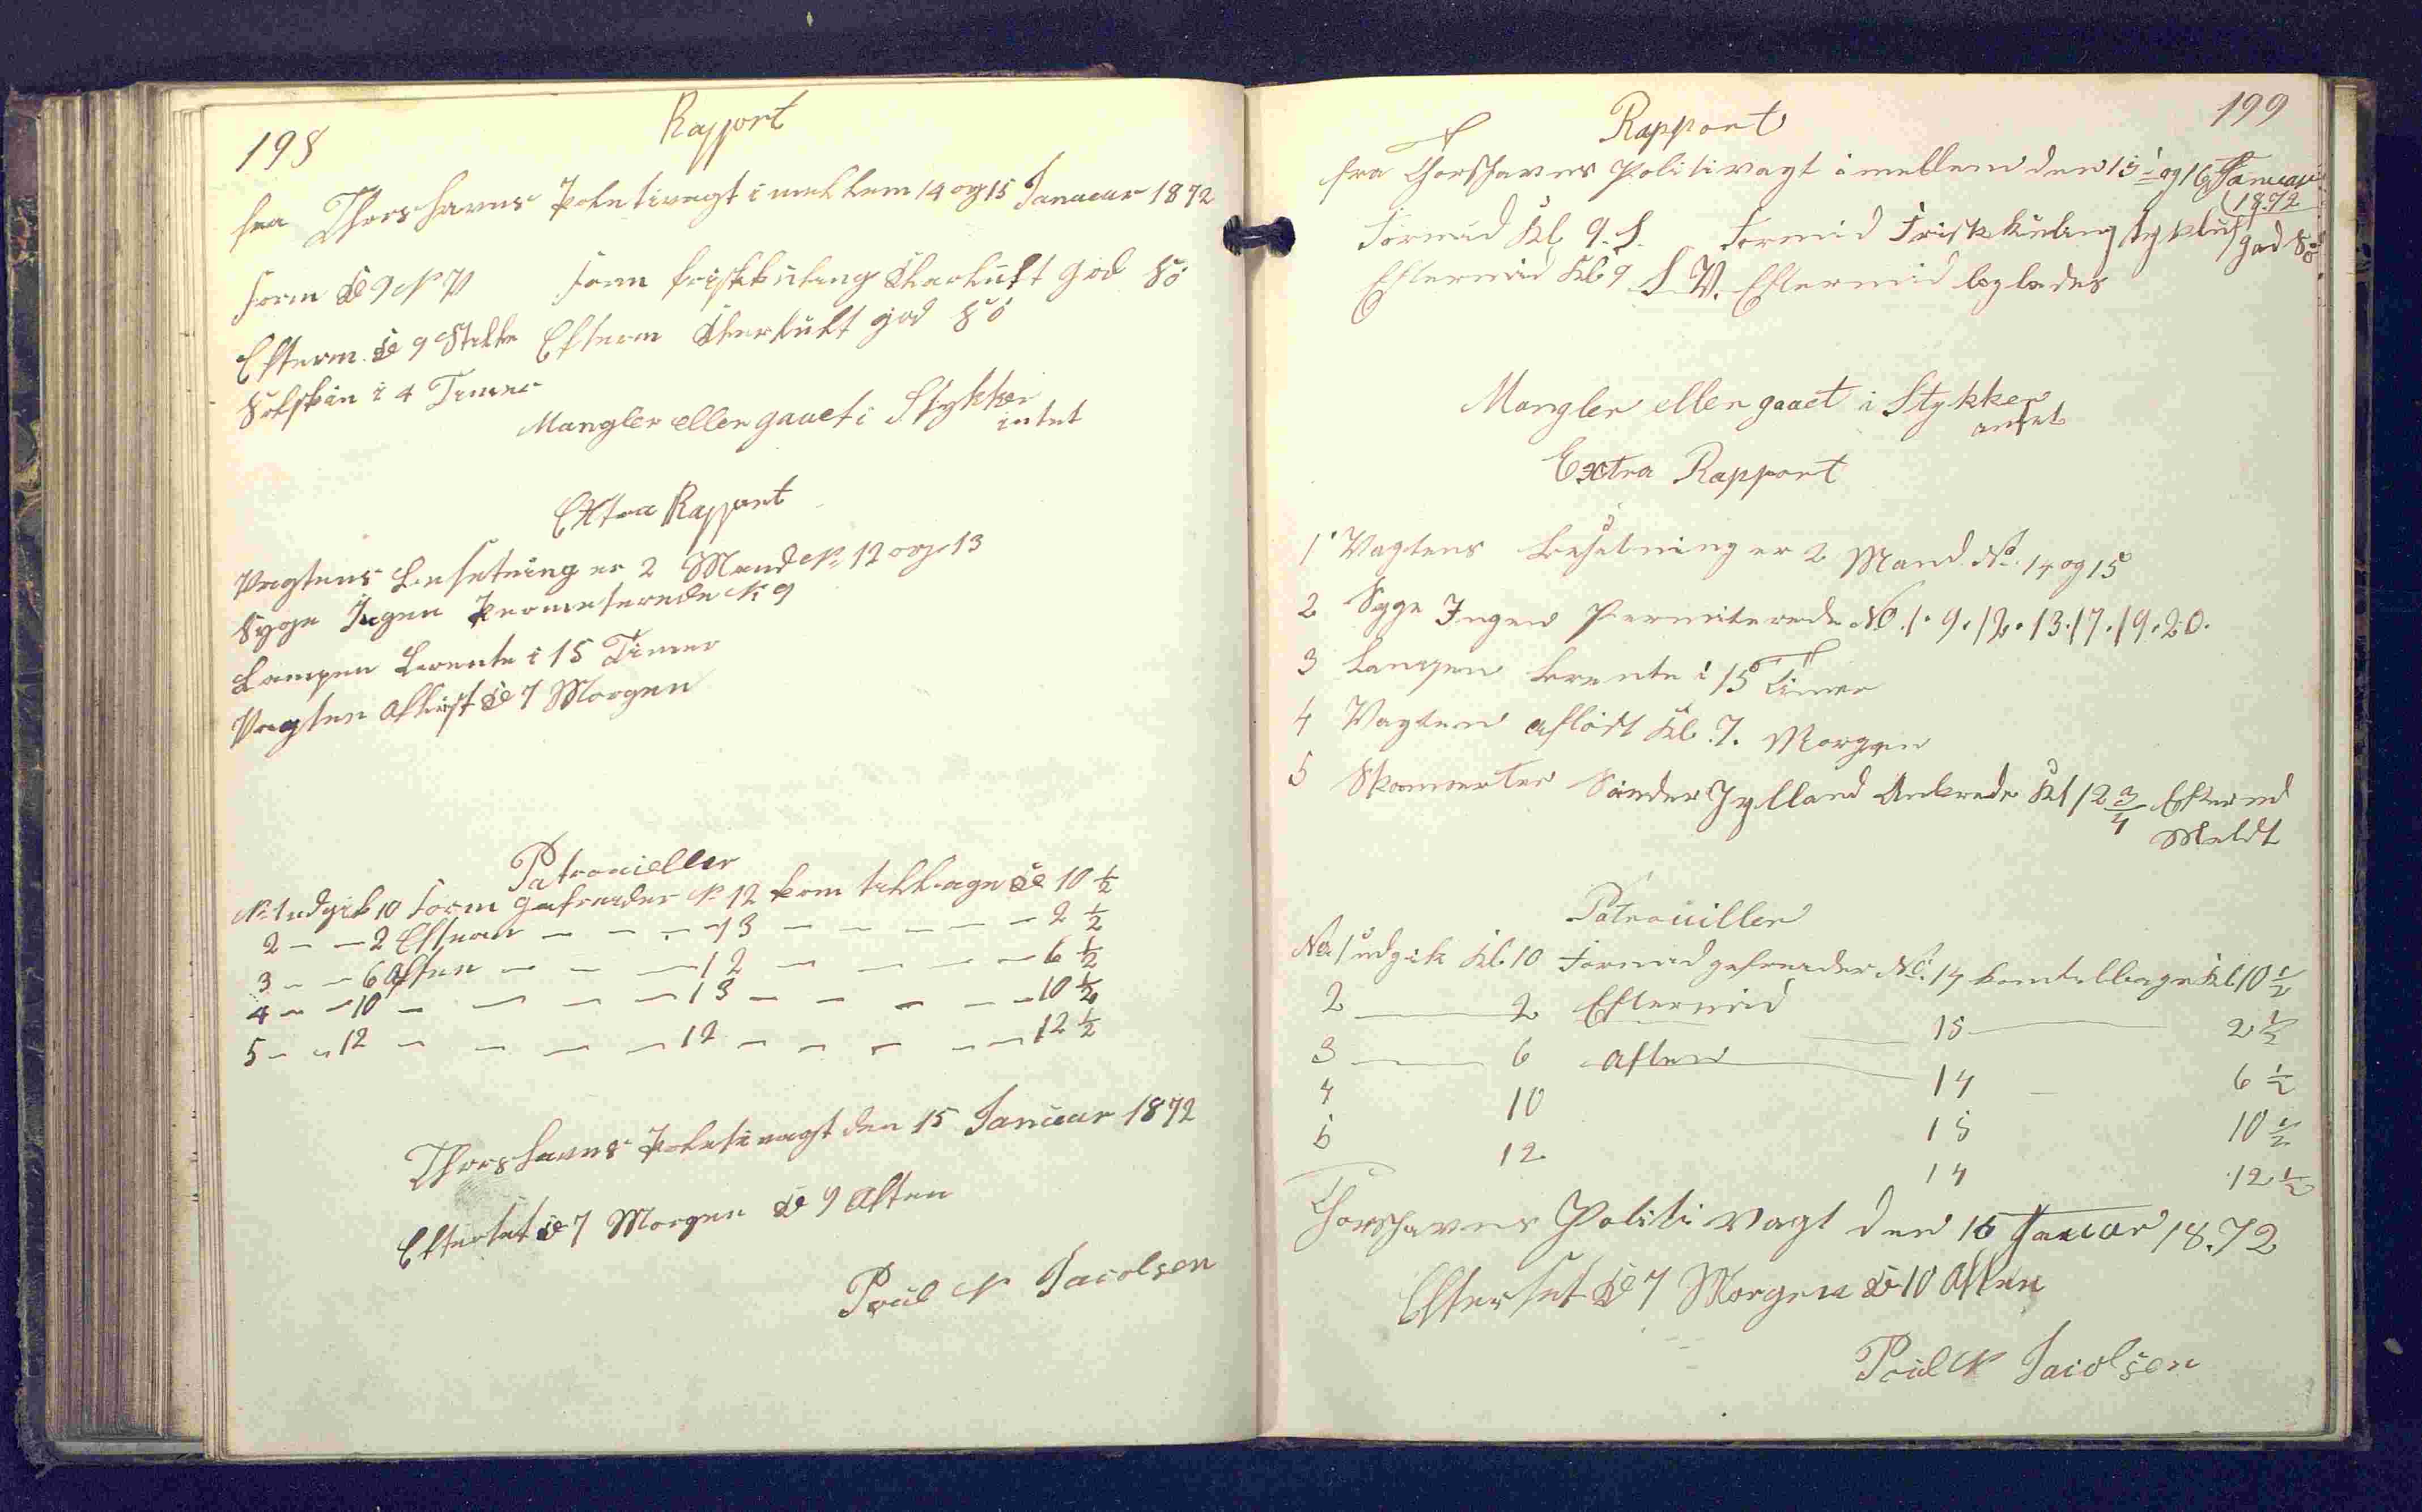 198
Rapport
fra Thorshavns Politivagt imellem 14 og 15 Januar 1872
Form Kl 9 N V Form friskkuling Klarluft god Sö
Efterm. Kl 9 Stille Efterm Klarluft god Sö
Solskin i 4 Timer
Mangler eller gaaet i Stykker
intet
Extra Rapport
Vagtens Besetning er 2 Mand No 12 og 13
Syge Ingen Permeterede No 9
Lampen brente i 15 Timer
Vagten aflöst Kl 7 Morgen
Patrouieller
No 1 udgik 10 Form gefreider No 12 kom tilbage Kl 10 ½
2 — — 2 Efterm — — — 13 — — — — — 2 ½
3 — — 6 Aften — — — 12 — — — — 6 ½
4 — — 10 — — — — 13 — — — — — 10 ½
5 — — 12 — — — — 12 — — — — — 12 ½
Thorshavns Politivagt den 15 Januar 1872
Efterset Kl 7 Morgen Kl 9 Aften
Poul N Jacobsen
199
Rapport
fra Thorshavns Politivagt imellem den 15 og 16 Januar
1872
Formid Kl. 9. S. Formid Friskkuling tykluft god Sö
Eftermid Kl. 9 S. V. Eftermid ligeledes
Mangler eller gaaet i Stykker
intet
Extra Rapport
1 Vagtens Besetning er 2 Mand No. 14 og 15
2 Syge Ingen Permiterede No. 1. 9. 12. 13. 17. 19. 20.
3 Lampen brente i 15 Timer
4 Vagten aflöst Kl. 7. Morgen
5 Skonnerten Sönder Jylland Ankrede Kl 12 ¾ Eftermd
Meldt
Patrouiller
No 1 udgik Kl. 10 Formid gefreider No. 14 kom tilbage Kl 10 ½
2 — 2 Eftermid — 15 — 2 ½
3 — 6 Aften — 14 — 6 ½
4 10 15 10 ½
5 12 14 12 ½
Thorshavns Politi Vagt den 16 Januar 18.72
Efterset Kl 7 Morgen Kl 10 Aften
Poul N Jacobsen